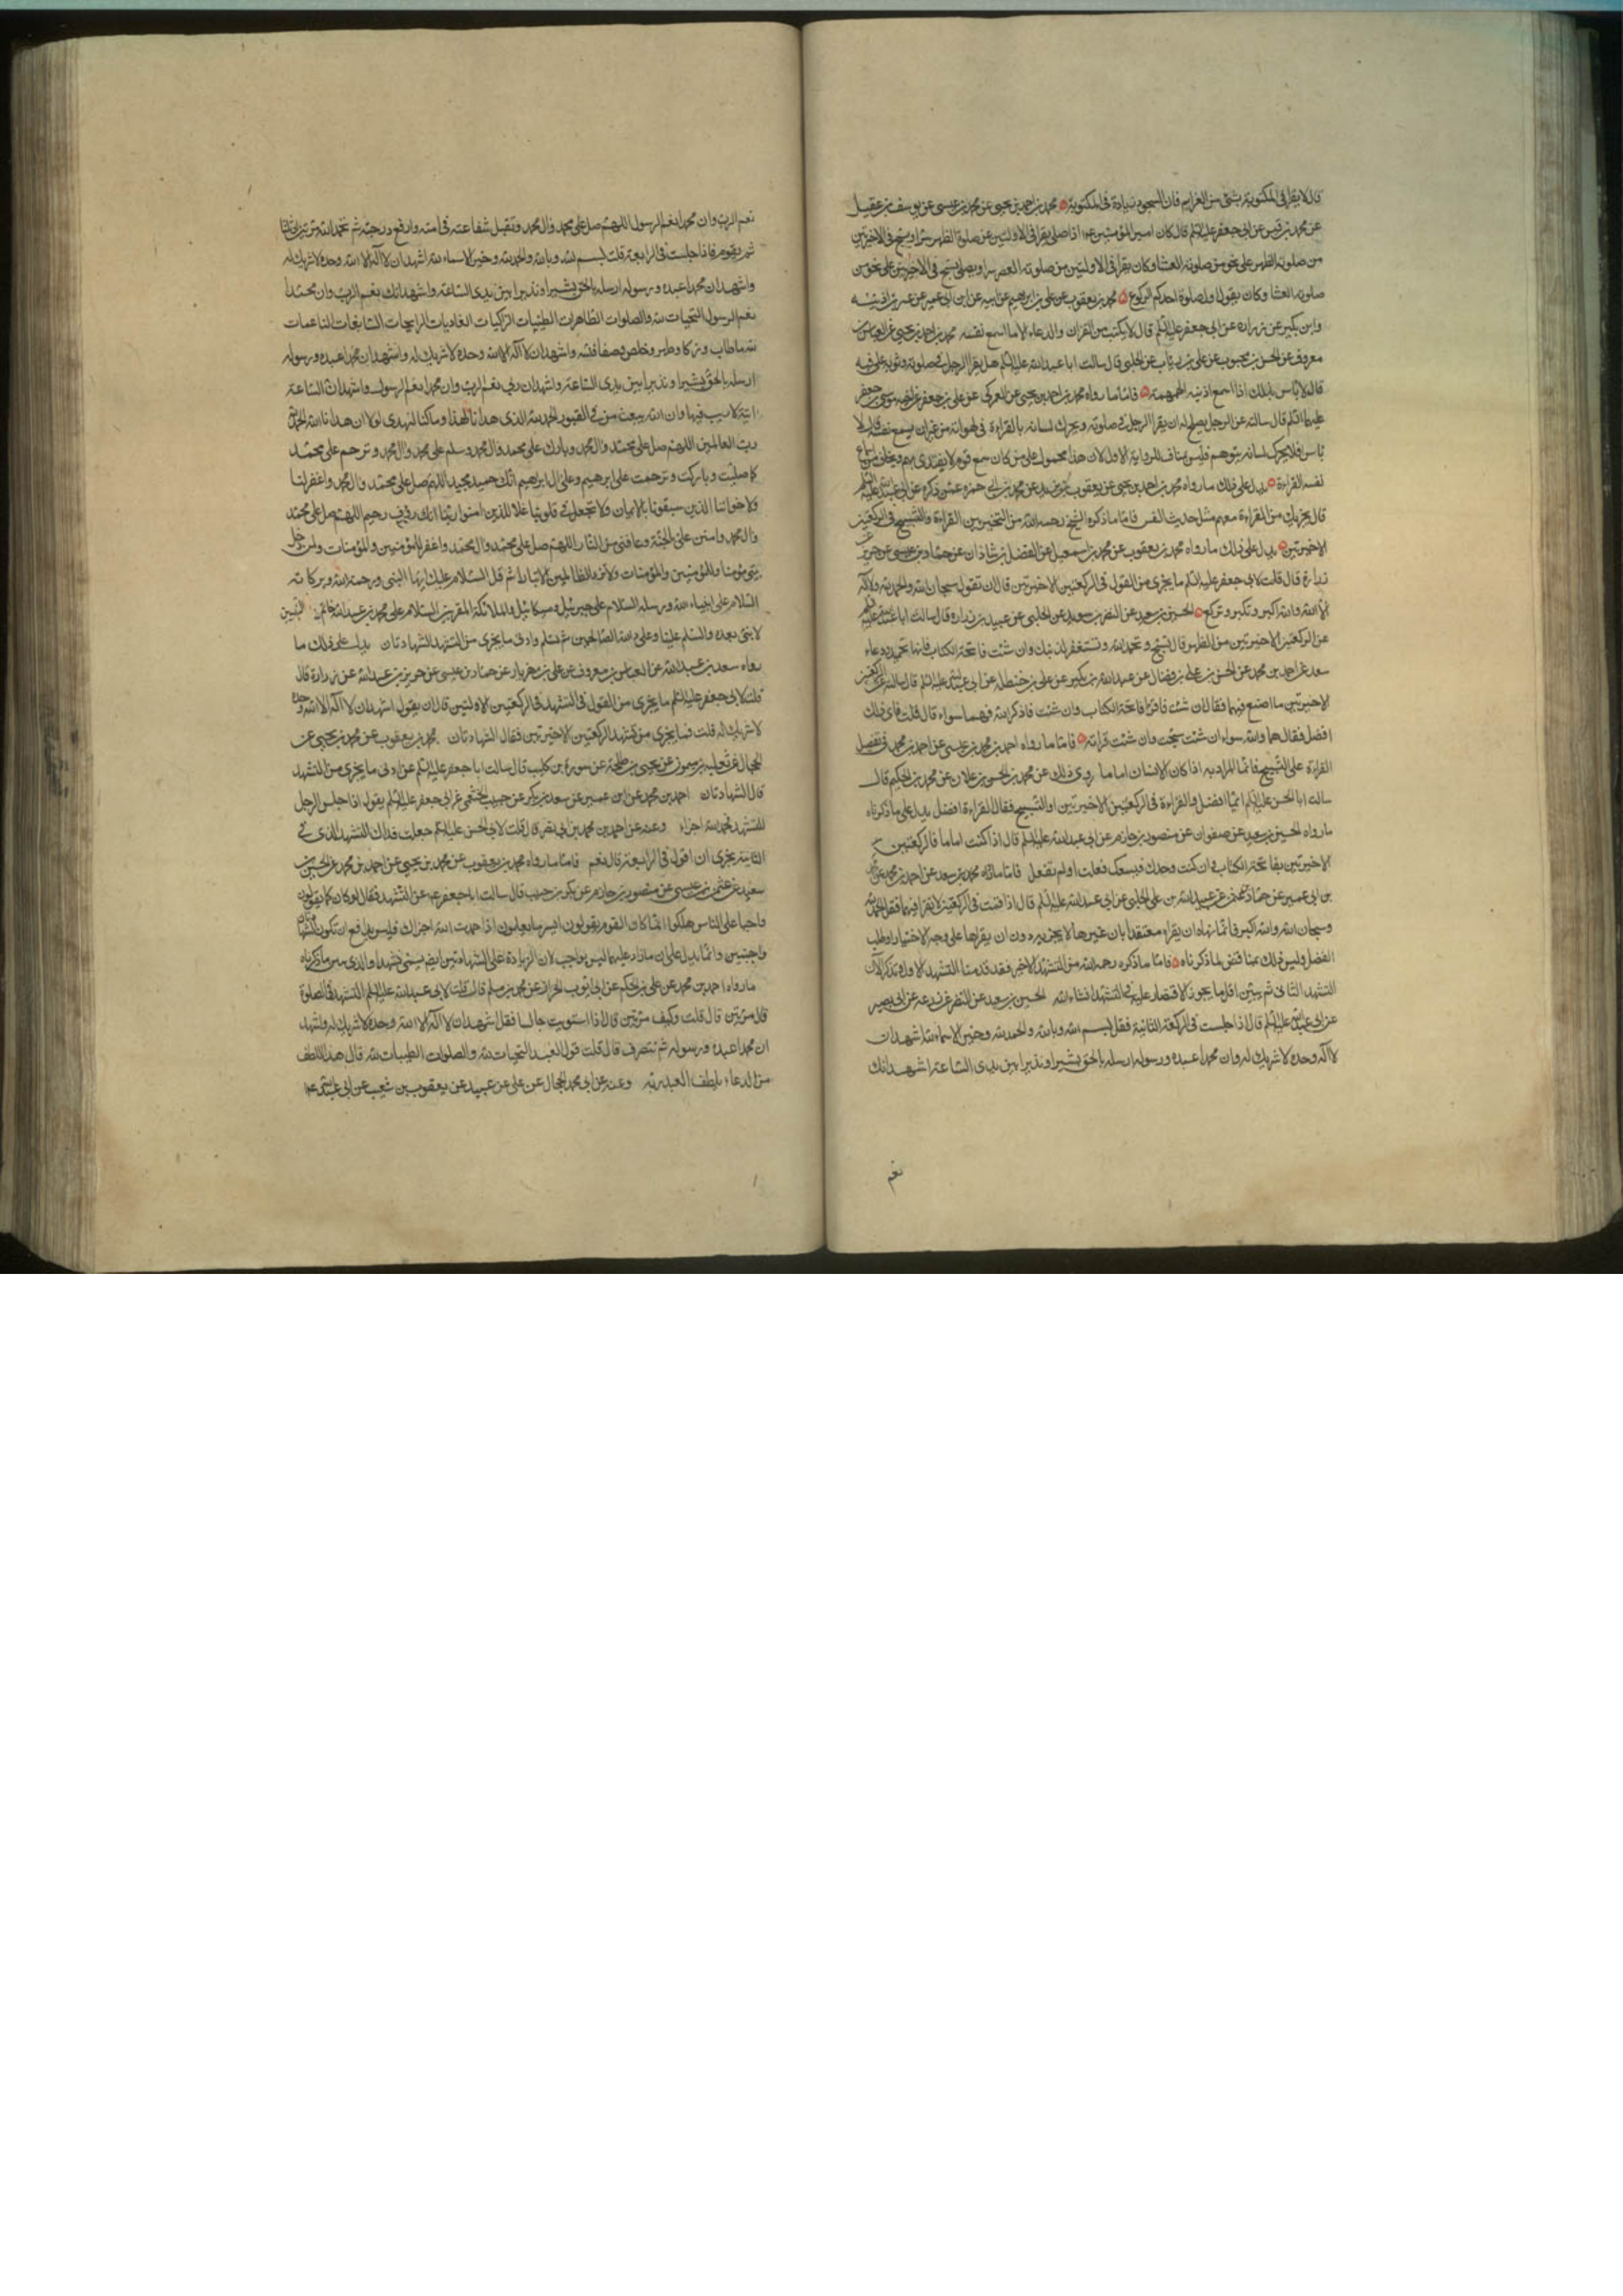 قال لا يقرا في المكتوبة بشئ من العزايم فان السجود زيادة في المكتوبة محمد بن احمد بن يحيى عن محمد بن عيسى عن يوسف بن عقيل
عن محمد بن قيس عن ابي جعفر عليه السلم قال كان امير المؤمنين عم اذا صلى يقرا في الاولتين من صلوة الظهر سرا ويسبح في الاخيرتين
من صلوته الظهر على نحو من صلوته العشا وكان يقرا في الاولتين من صلوته العصر سرا ويسبح في الاخيرتين على نحو من
صلوته العشا وكان يقول اول صلوة احدكم الركوع محمد بن يعقوب عن علي بن ابرهيم عن ابيه عن ابن ابي عمير عن عمر بن اذينه
وابن بكير عن زراره عن ابي جعفر عليه السلم قال لا يكتب من القران والدعاء الا ما اسمع نفسه محمد بن احمد بن يحيى عن العباس بن
معروف عن الحسن بن محبوب عن علي بن رئاب عن الحلبي قال سالت ابا عبد الله عليه السلم هل يقرا الرجل في صلوته وثوبه على فيه
قال لا باس بذلك اذا اسمع اذنيه الهمهمة فاما ما رواه محمد بن احمد بن يحيى عن العمركي عن علي بن جعفر عن اخيه موسى بن جعفر
عليهما السلم قال سالته عن الرجل يصلح له ان يقرا الرجل في صلوته ويحرك لسانه بالقراءة في لهواته من غير ان يسمع نفسه قال لا
باس فلا يحرك لسانه يتوهم فليس بمناف للرواية الاولى لان هذا محمول على من كان مع قوم لا يقتدى بهم ويخاف من اسماع
نفسه القراءة يدل على ذلك ما رواه محمد بن احمد بن يحيى عن يعقوب بن يزيد عن محمد بن ابي حمزه عمن ذكره عن ابي عبد الله عليه السلم
قال يجزيك من القراءة معهم مثل حديث النفس فاما ما ذكره الشيخ رحمه الله من التخيير بين القراءة والتسبيح في الركعتين
الاخيرتين يدل على ذلك ما رواه محمد بن يعقوب عن محمد بن اسمعيل عن الفضل بن شاذان عن حماد بن عيسى عن حريز عن
زرارة قال قلت لابي جعفر عليه السلم ما يجزي من القول في الركعتين الاخيرتين قال ان تقول سبحان الله والحمد لله ولا اله
الا الله والله اكبر وتكبر وتركع الحسين بن سعيد عن النضر بن سويد عن الحلبي عن عبيد بن زراره قال سالت ابا عبد الله عليه السلم
عن الركعتين الاخيرتين من الظهر قال تسبح وتحمد الله وتستغفر لذنبك وان شئت فاتحة الكتاب فانها تحميد ودعاء
سعد عن احمد بن محمد عن الحسن بن علي بن فضال عن عبد الله بن بكير عن علي بن حنظله عن ابي عبد الله عليه السلم قال سالته عن الركعتين
الاخيرتين ما اصنع فيهما فقال ان شئت فاقرا فاتحة الكتاب وان شئت فاذكر الله فهما سواء قال قلت فاي ذلك
افضل فقال هما والله سواء ان شئت سبحت وان شئت قرات فاما ما رواه احمد بن محمد بن عيسى عن احمد بن محمد في تفضل
القراءة على التسبيح فانما المراد به اذا كان الانسان اماما روى ذلك عن محمد بن الحسن بن علان عن محمد بن الحكيم قال
سالت ابا الحسن عليه السلم ايما افضل القراءة في الركعتين الاخيرتين او التسبيح فقال القراءة افضل يدل على ما ذكرناه
ما رواه الحسين بن سعيد عن صفوان عن منصور بن حازم عن ابي عبد الله عليه السلم قال اذا كنت اماما فاقرا في الركعتين
الاخيرتين بفاتحة الكتاب وان كنت وحدك فيسعك فعلت او لم تفعل فاما ما رواه محمد بن سعد عن احمد بن محمد عن محمد
بن ابي عمير عن حماد بن عثمن عن عبيد الله بن علي الحلبي عن ابي عبد الله عليه السلم قال اذا قمت في الركعتين لا تقرا فيهما فقل الحمد لله
وسبحان الله والله اكبر فانما نهاه ان يقراء معتقدا بان غيرها لا يجزيه دون ان يقراها على وجه الاختيار وطلب
الفضل وليس ذلك بمناقض لما ذكرناه فاما ما ذكره رحمه الله من التشهد الاخير فقد قدمنا التشهد الاول ونذكر الان
التشهد الثاني ثم نبين اقل ما يجوز الاقتصار عليه في التشهد انشاء الله الحسين بن سعيد عن النضر عن زرعه عن ابي بصير
عن ابي عبد الله عليه السلم قال اذا جلست في الركعة الثانية فقل بسم الله وبالله والحمد لله وخير الاسماء لله اشهد ان
لا اله وحده لا شريك له وان محمدا عبده ورسوله ارسله بالحق بشيرا ونذيرا بين يدى الساعة اشهد انك
نعم
نعم الرب وان محمدا نعم الرسول اللهم صل على محمد وال محمد وتقبل شفاعته في امته وارفع درجته ثم تحمد الله مرتين او ثلثا
ثم يقوم فاذا جلست في الرابعة قلت بسم الله وبالله والحمد لله وخير الاسماء لله اشهد ان لا اله الا الله وحده لا شريك له
واشهد ان محمدا عبده ورسوله ارسله بالحق بشيرا ونذيرا بين يدى الساعة واشهد انك نعم الرب وان محمدا
نعم الرسول التحيات لله والصلوات الطاهرات الطيبات الزاكيات الغاديات الرايحات السابغات الناعمات
لله ما طاب وزكا وطهر وخلص وصفا فلله واشهد ان لا اله الا الله وحده لا شريك له واشهد ان محمدا عبده ورسوله
ارسله بالحق بشيرا ونذيرا بين يدى الساعة واشهد ان ربي نعم الرب وان محمدا نعم الرسول واشهد ان الساعة
اتية لا ريب فيها وان الله يبعث من في القبور الحمد لله الذي هدانا لهذا وما كنا لنهتدى لولا ان هدانا الله الحمد لله
رب العالمين اللهم صل على محمد وال محمد وبارك على محمد وال محمد وسلم على محمد وال محمد وترحم على محمد
كما صليت وباركت وترحمت على ابرهيم وعلى ال ابراهيم انك حميد مجيد اللهم صل على محمد وال محمد واغفر لنا
ولاخواننا الذين سبقونا بالايمان ولا تجعل في قلوبنا غلا للذين امنوا ربنا انك رؤف رحيم اللهم صل على محمد
وال محمد وامنن على بالجنة وعافنى من النار اللهم صل على محمد وال محمد واغفر للمؤمنين والمؤمنات ولمن دخل
بيتي مؤمنا وللمؤمنين والمؤمنات ولا تزد الظالمين الا تبارا ثم قل السلام عليك ايها النبى ورحمة الله وبركاته
السلام على انبياء الله ورسله السلام على جبرئيل وميكائيل والملائكة المقربين السلام على محمد بن عبد الله خاتم النبيين
لا نبى بعده والسلم علينا وعلى عباد الله الصالحين ثم تسلم وادنى ما يجزى من التشهد الشهادتان يدل على ذلك ما
رواه سعد بن عبد الله عن العباس بن معروف عن علي بن مهزيار عن حماد بن عيسى عن حريز بن عبد الله عن زرارة قال
قلت لابي جعفر عليه السلم ما يجزى من القول في التشهد في الركعتين الاولتين قال ان يقول اشهد ان لا اله الا الله وحده
لا شريك له قلت فما يجزى من تشهد الركعتين الاخيرتين فقال الشهادتان محمد بن يعقوب عن محمد بن يحيى عن
الحجال عن ثعلبه بن ميمون عن يحيى بن طلحة عن سورة بن كليب قال سالت ابا جعفر عليه السلم عن ادنى ما يجزى من التشهد
قال الشهادتان احمد بن محمد عن ابن عمير عن سعد بن بكر عن حبيب الخثعمي عن ابي جعفر عليه السلم يقول اذا جلس الرجل
للتشهد فحمد الله اجزاه وعنه عن احمد بن محمد بن ابي نصر قال قلت لابي الحسن عليه السلم جعلت فداك التشهد الذي في
الثانية يجزى ان اقول في الرابعة قال نعم فاما ما رواه محمد بن يعقوب عن محمد بن يحيى عن احمد بن محمد عن الحسين بن
سعيد عن عثمن بن عيسى عن منصور بن حازم عن بكر بن حبيب قال سالت ابا جعفر عم عن التشهد فقال لو كان كما يقولون
واجبا على الناس هلكوا انما كان القوم يقولون ايسر ما يعلمون اذا حمدت الله اجزاك فليس بدافع ان تكون الشهادتان
واجبتين وانما يدل على ان ما زاد عليهما ليس بواجب لان الزيادة على الشهادتين ايضا يسمى تشهدا والذي يبين ما ذكرناه
ما رواه احمد بن محمد عن علي بن الحكم عن ابي ايوب الخراز عن محمد بن مسلم قال قلت لابي عبد الله عليه السلم التشهد في الصلوة
قال مرتين قال قلت وكيف مرتين قال اذا استويت جالسا فقل اشهد ان لا اله الا الله وحده لا شريك له واشهد
ان محمدا عبده ورسوله ثم تنصرف قال قلت قول العبد التحيات لله والصلوات الطيبات لله قال هذا اللطف
من الدعاء يلطف العبد ربه وعنه عن ابي محمد الحجال عن علي عن عبيد عن يعقوب بن شعيب عن ابي عبد الله عم